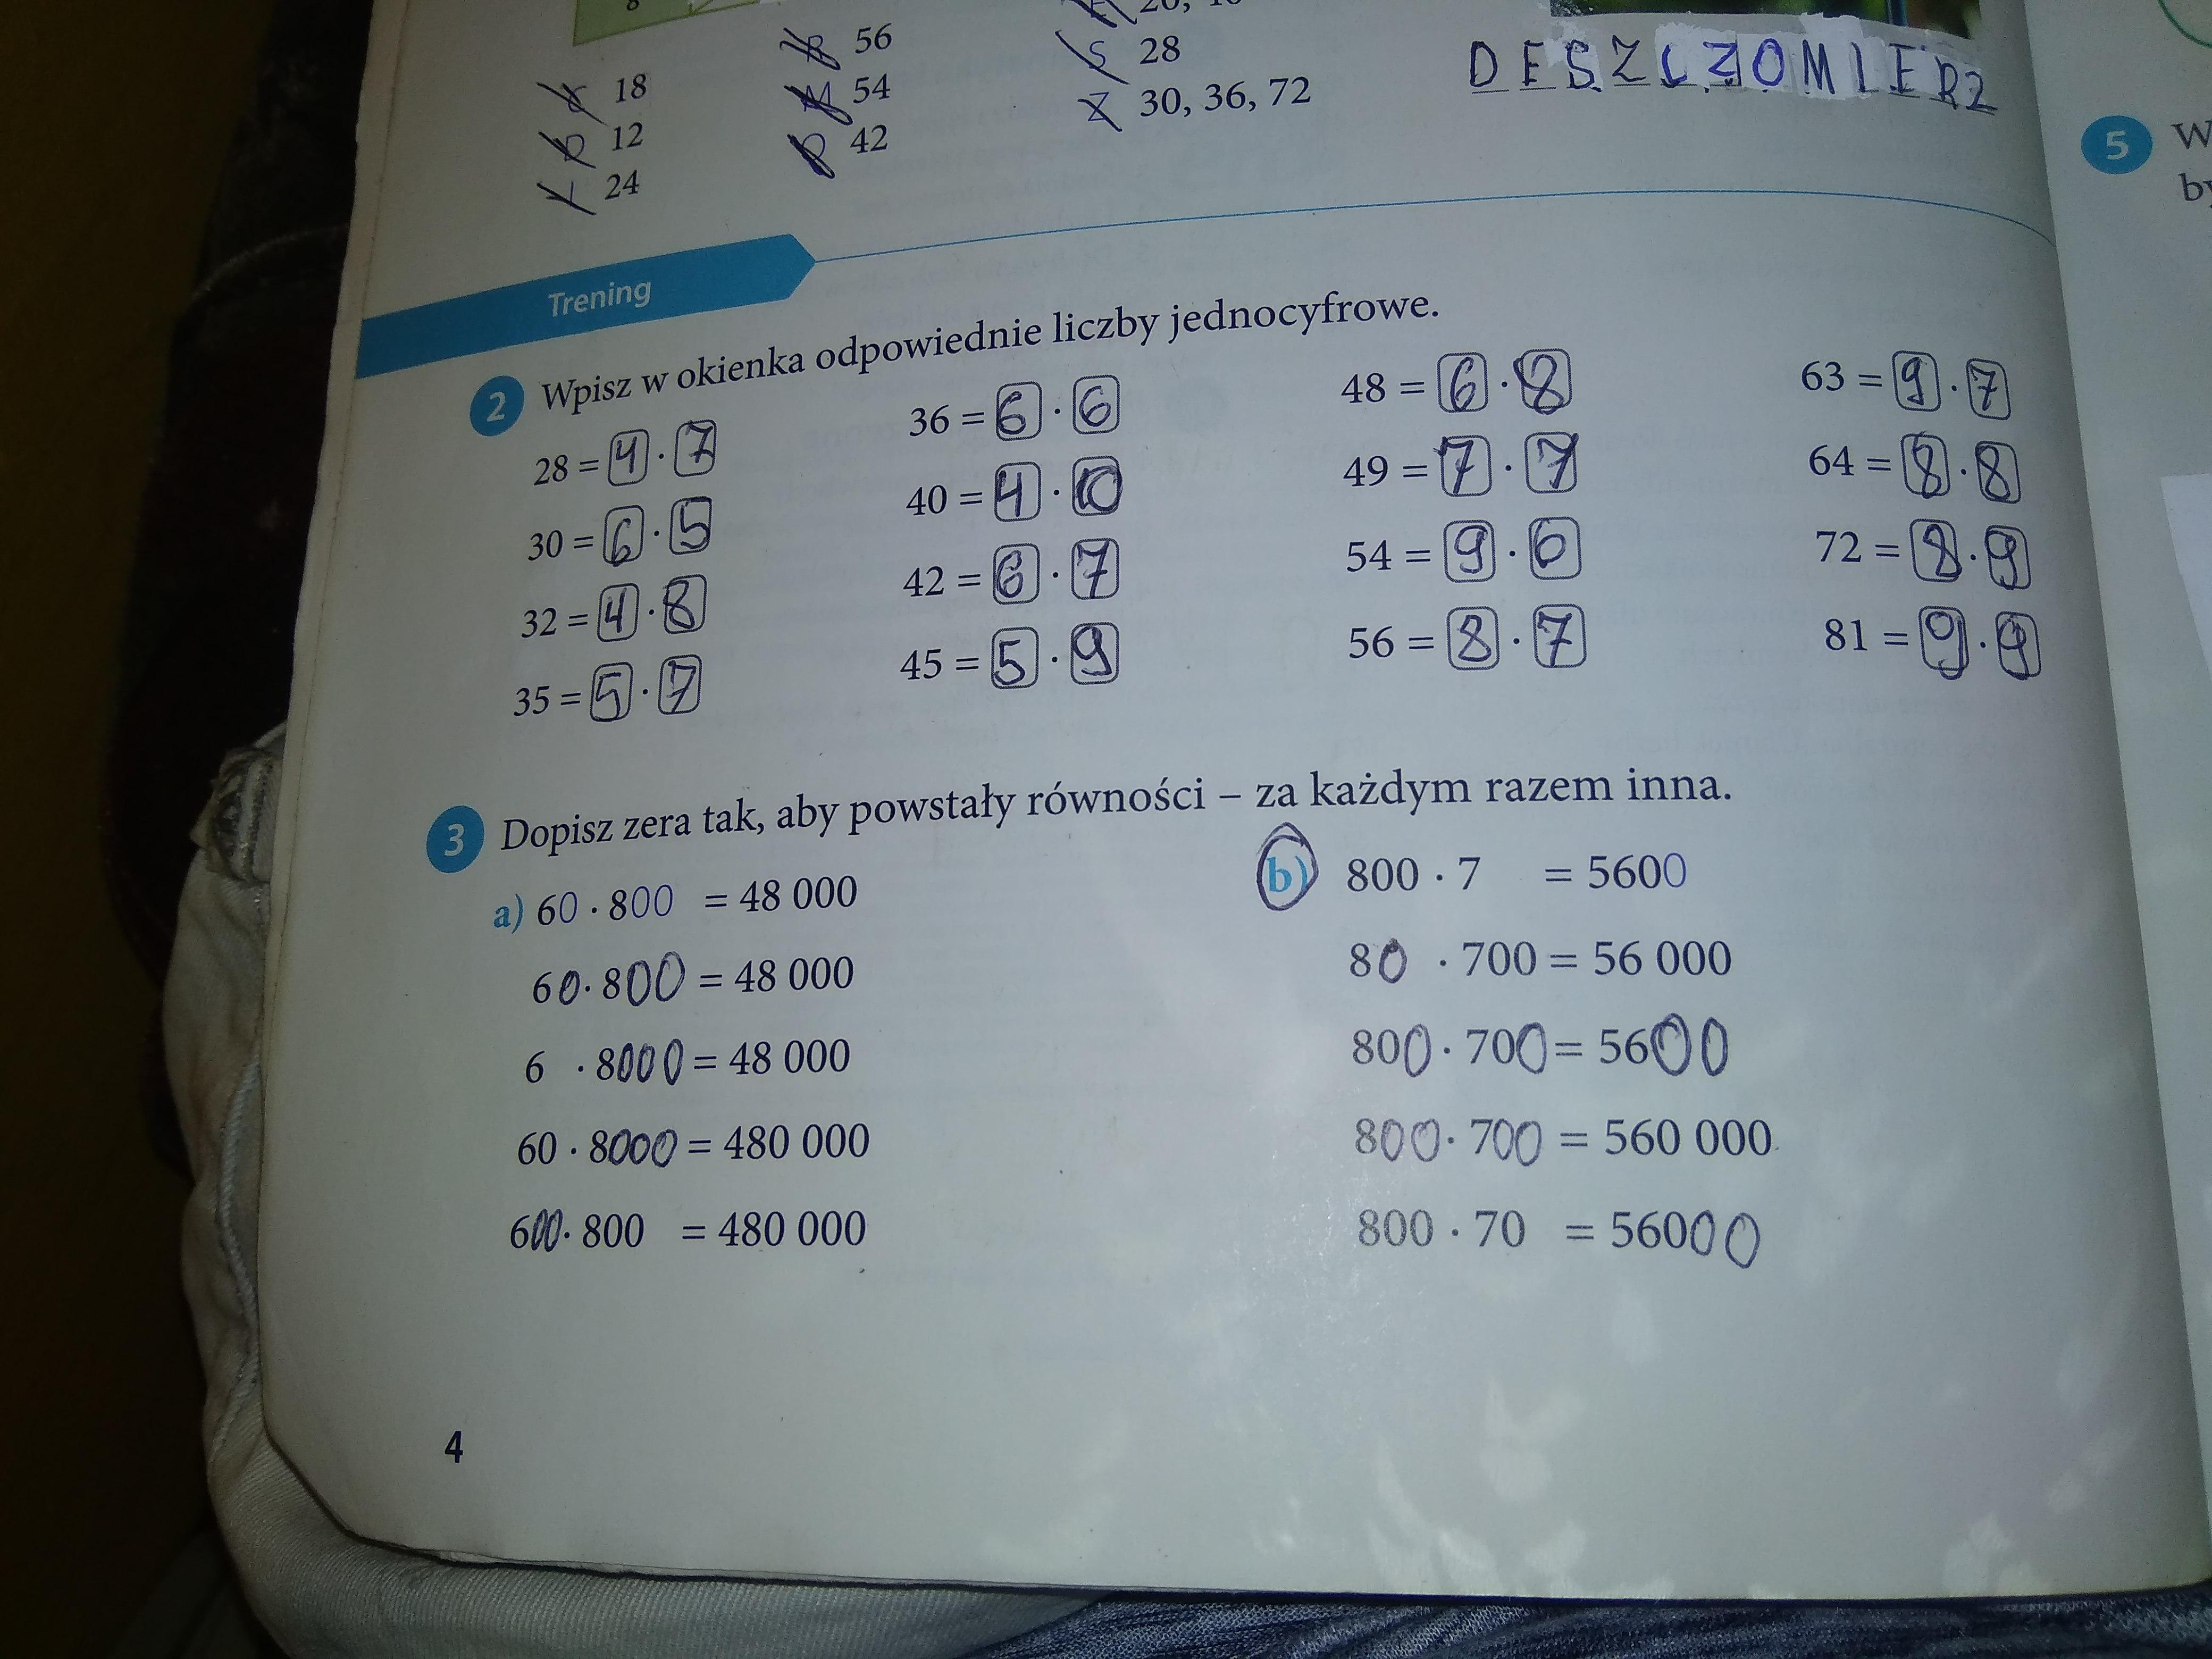 56
28
18
54
30, 36, 72
12
42
24
DESZCZOMIERZ
5
Trening
2 Wpisz w okienka odpowiednie liczby jednocyfrowe.
28 = 4 · 7
30 = 6 · 5
32 = 4 · 8
35 = 5 · 7
36 = 6 · 6
40 = 4 · 10
42 = 6 · 7
45 = 5 · 9
48 = 6 · 8
49 = 7 · 7
54 = 9 · 6
56 = 8 · 7
63 = 9 · 7
64 = 8 · 8
72 = 8 · 9
81 = 9 · 9
3 Dopisz zera tak, aby powstały równości – za każdym razem inna.
a) 60 · 800 = 48 000
60 · 800 = 48 000
6 · 8000 = 48 000
60 · 8000 = 480 000
600 · 800 = 480 000
b) 800 · 7 = 5600
80 · 700 = 56 000
800 · 700 = 5600
800 · 700 = 560 000
800 · 70 = 56000
4